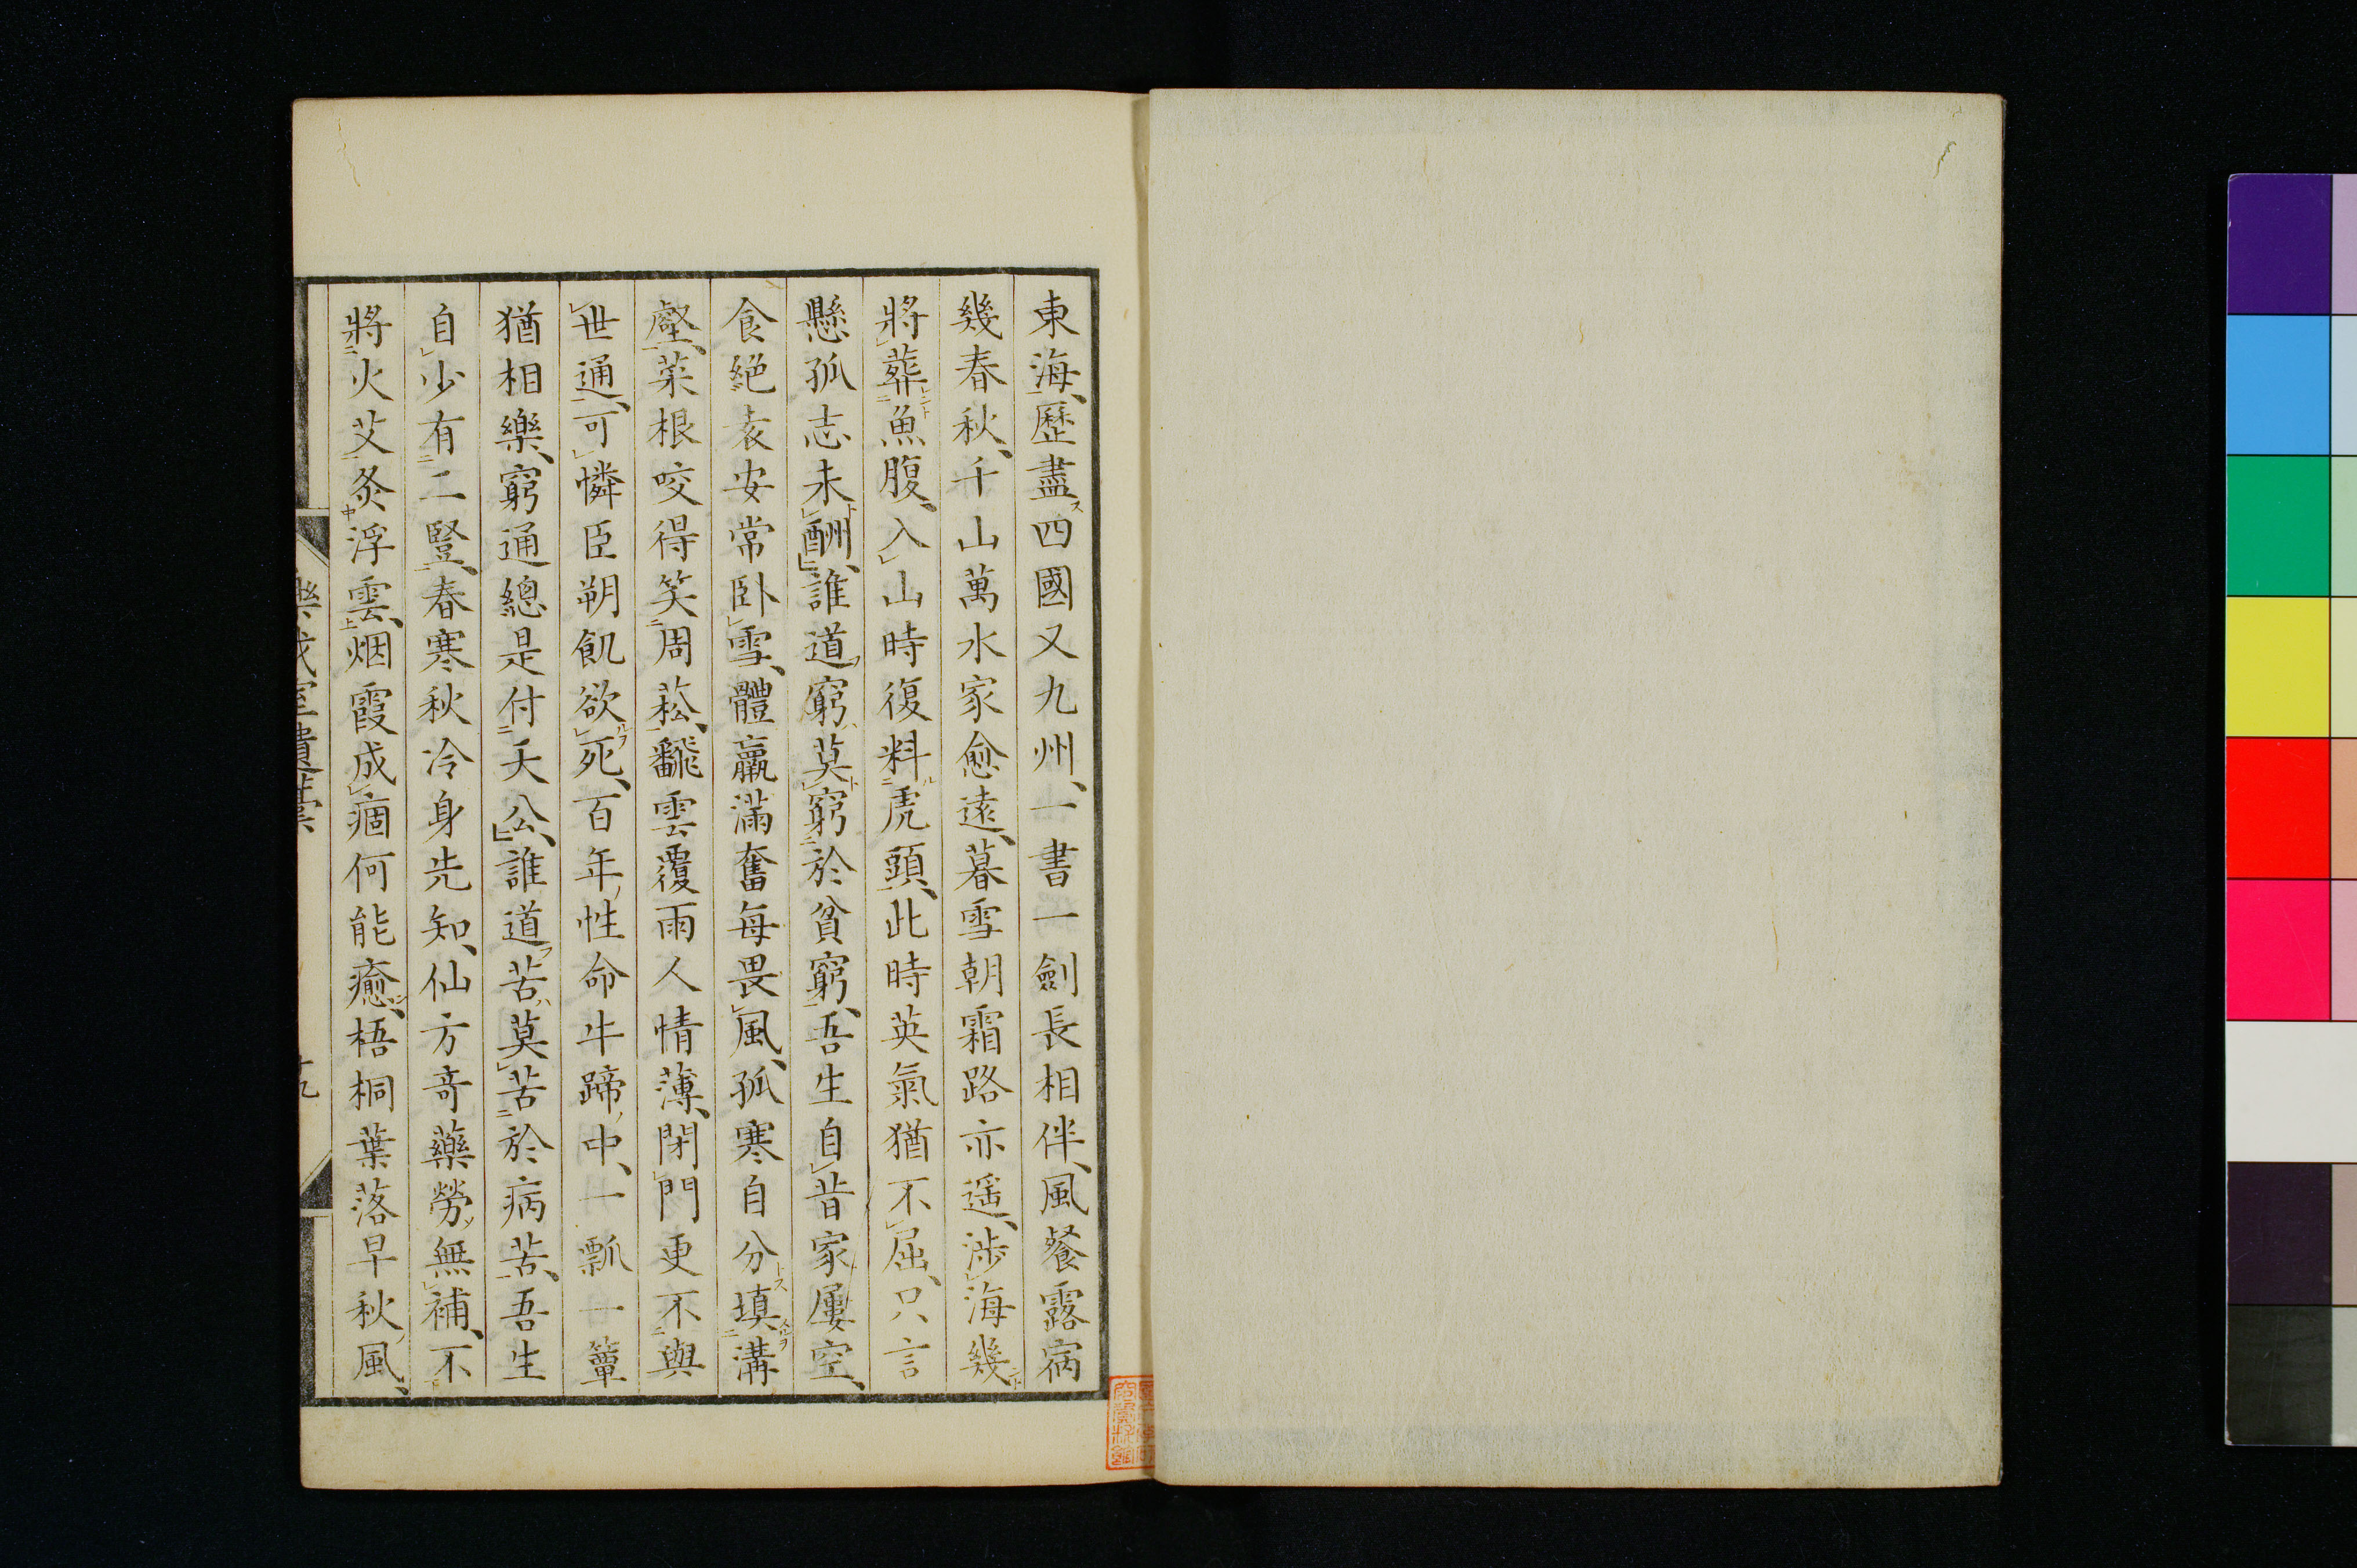 東海、歷盡四國又九州、一書一劍長相伴、風餐露宿
幾春秋、千山萬水家愈遠、暮雪朝霜路亦遥、涉海幾
將葬魚腹、入山時復料虎頭、此時英氣猶不屈、只言
懸孤志未酬、誰道窮莫窮於貧窮、吾生自昔家屢空、
食絕袁安常臥雪、體羸滿奮每畏風、孤寒自分填溝
壑、菜根咬得笑周菘、飜雲覆雨人情薄、閉門更不與
世通、可憐臣朔飢欲死、百年性命牛蹄中、一瓢一簞
猶相樂、窮通總是付天公、誰道苦莫苦於病苦、吾生
自少有二豎、春寒秋冷身先知、仙方奇藥勞無補、不
將火艾灸浮雲、烟霞成痼何能癒、梧桐葉落早秋風、